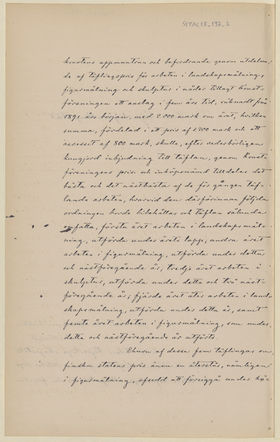 konstens uppmuntran och befordrande genom utdelan-
de af täflingspris för arbeten i landskapsmålning,
figurmålning och skulptur i nåder tillagt konst-
föreningen ett anslag i fem års tid, räknadt från
1891 års början, med 2.000 mark om året, hvilken
summa, fördelad i ett pris af 1200 mark och ett
accessit af 800 mark, skulle, efter vederbörligen
kungjord inbjudning till täflan, genom Konst-
föreningens pris och inköpsnämnd tilldelas det
bästa och det nästbästa af de för gången täf-
lande arbeten, hvarvid den därförinnan följda
ordningen borde bibehållas och täflan sålunda
omfatta: första året arbeten i landskapsmål-
ning, utförda under årets lopp, andra året
arbeten i figurmålning, utförda under detta
och nästföregående år, tredje året arbeten i
skulptur, utförda under detta och två näst-
föregående år; fjärde året åter arbeten i land-
skapsmålning, utförda under detta år, samt
femte året arbeten i figurmålning, som under
detta och nästföregående år utförts.
Utom af dessa fem täflingar om-
statens pris ännu en återstår, nämligen
i figurmålning, att försiggå under